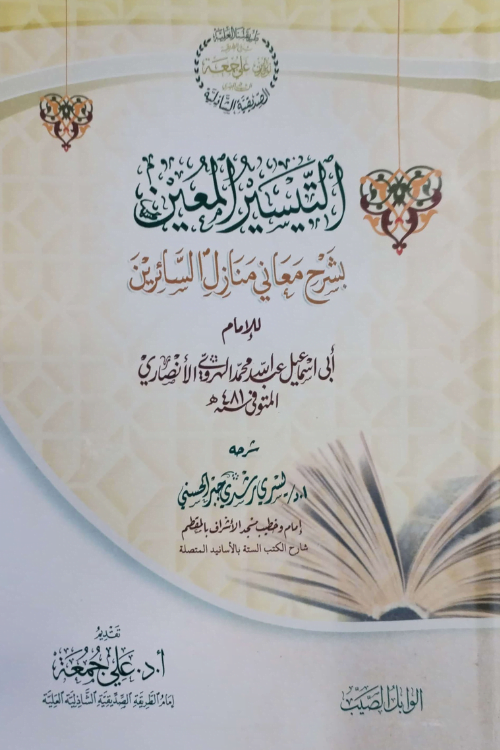 علي جمعة
الصديقية الشاذلية
التيسير المعين
بشرح معاني منازل السائرين
للإمام
أبي إسماعيل عبد الله محمد الهروي الأنصاري
المتوفى سنة ٤٨١ هـ
شرحه
أ.د/ يسري رشدي جبر الحسني
إمام وخطيب مسجد الأشراف بالمقطم
شارح الكتب الستة بالأسانيد المتصلة
تقديم
أ.د. علي جمعة
إمام الطريقة الصديقية الشاذلية العلية
الوابل الصيب